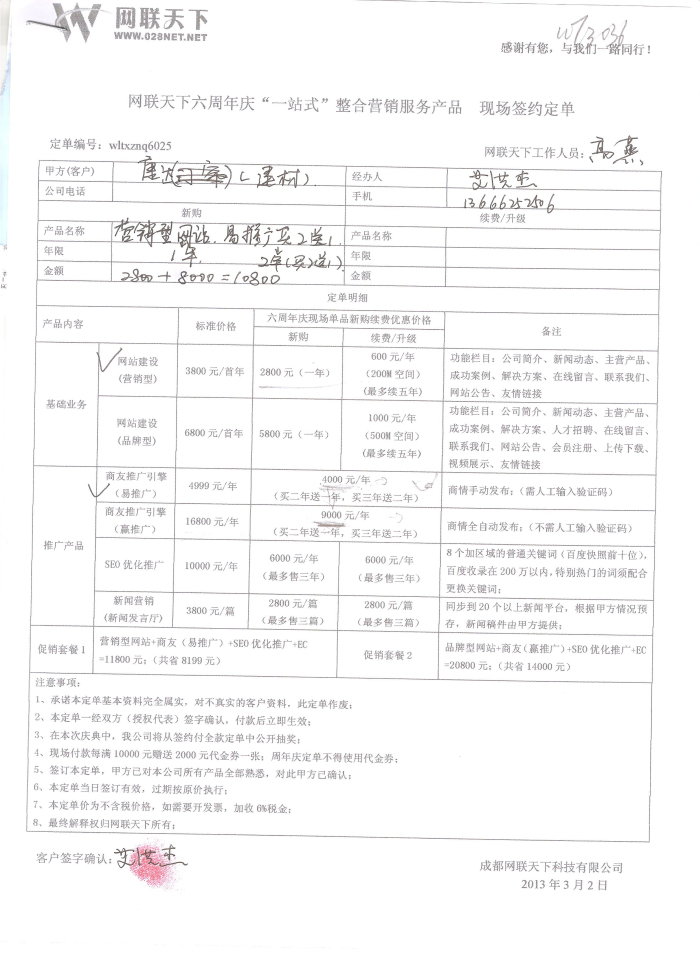 网联天下
WWW.028NET.NET
感谢有您，与我们一路同行！
网联天下六周年庆“一站式”整合营销服务产品 现场签约定单
定单编号：wltxznq6025
网联天下工作人员：高燕
甲方(客户) (建材) 经办人 艾洪杰
公司电话 手机 13666252506
新购 续费/升级
产品名称 营销型网站、易推广买2送1 产品名称
年限 1年 2年(买2送1) 年限
金额 2800+8000=10800 金额
定单明细
产品内容 标准价格 六周年庆现场单品新购续费优惠价格 备注
新购 续费/升级
基础业务
网站建设（营销型） 3800元/首年 2800元（一年） 600元/年（200M空间）（最多续五年） 功能栏目：公司简介、新闻动态、主营产品、成功案例、解决方案、在线留言、联系我们、网站公告、友情链接
网站建设（品牌型） 6800元/首年 5800元（一年） 1000元/年（500M空间）（最多续五年） 功能栏目：公司简介、新闻动态、主营产品、成功案例、解决方案、人才招聘、在线留言、联系我们、网站公告、会员注册、上传下载、视频展示、友情链接
推广产品
商友推广引擎（易推广） 4999元/年 4000元/年（买二年送一年，买三年送二年） 商情手动发布；（需人工输入验证码）
商友推广引擎（赢推广） 16800元/年 9000元/年（买二年送一年，买三年送二年） 商情全自动发布；（不需人工输入验证码）
SEO优化推广 10000元/年 6000元/年（最多售三年） 6000元/年（最多售三年） 8个加区域的普通关键词（百度快照前十位），百度收录在200万以内，特别热门的词须配合更换关键词；
新闻营销（新闻发言厅） 3800元/篇 2800元/篇（最多售三篇） 2800元/篇（最多售三篇） 同步到20个以上新闻平台，根据甲方情况预存，新闻稿件由甲方提供；
促销套餐1 营销型网站+商友（易推广）+SEO优化推广+EC=11800元；（共省8199元） 促销套餐2 品牌型网站+商友（赢推广）+SEO优化推广+EC=20800元；（共省14000元）
注意事项：
1、承诺本定单基本资料完全属实，对不真实的客户资料，此定单作废；
2、本定单一经双方（授权代表）签字确认，付款后立即生效；
3、在本次庆典中，我公司将从签约付全款定单中公开抽奖；
4、现场付款每满10000元赠送2000元代金券一张；周年庆定单不得使用代金券；
5、签订本定单，甲方已对本公司所有产品全部熟悉，对此甲方已确认；
6、本定单当日签订有效，过期按原价执行；
7、本定单价为不含税价格，如需要开发票，加收6%税金；
8、最终解释权归网联天下所有；
客户签字确认：艾洪杰
成都网联天下科技有限公司
2013年3月2日